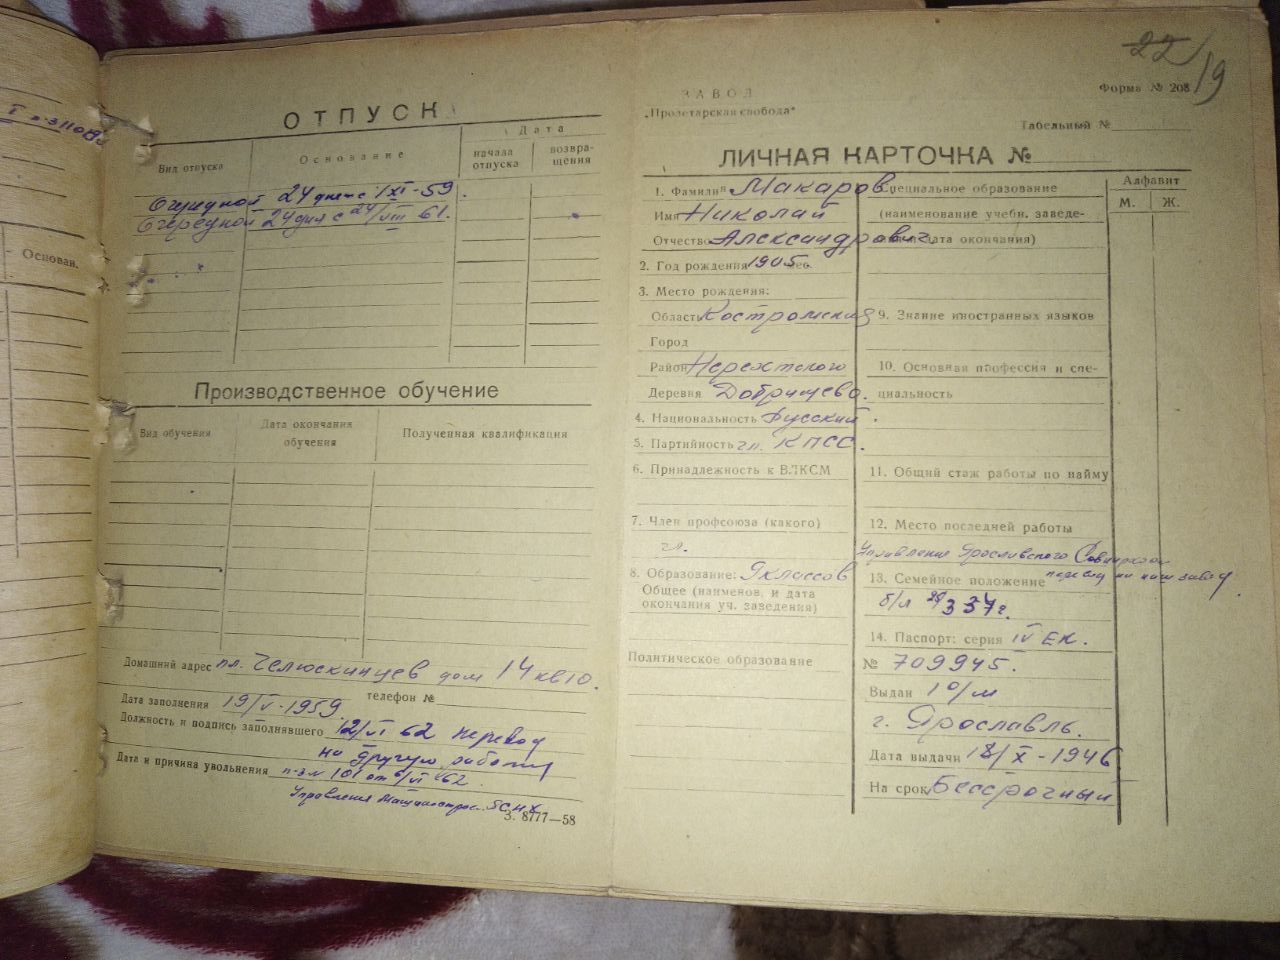 Основан.
ОТПУСК
Вид отпуска
Основание
Дата
начала отпуска
возвра-
щения
Очередной 24 дня с 1/XI-59.
Очередной 24 дня с 24/VIII 61.
Производственное обучение
Вид обучения
Дата окончания
обучения
Полученная квалификация
Домашний адрес пл. Челюскинцев дом 14 кв 10.
телефон №
Дата заполнения 19/V-1959.
Должность и подпись заполнявшего 12/VI 62 перевод
на другую работу
Дата и причина увольнения п-з № 101 от 6/VI 62.
Управления
З. 8777—58
22
19
ЗАВОД
„Пролетарская свобода“
Форма № 208
Табельный №
ЛИЧНАЯ КАРТОЧКА №
1. Фамилия Макаров
Имя Николай
Отчество Александрович
2. Год рождения 1905
3. Место рождения:
Область Костромская
Город
Район Нерехтского
Деревня Добрищево.
4. Национальность Русский.
5. Партийность чл. КПСС.
6. Принадлежность к ВЛКСМ
7. Член профсоюза (какого)
чл.
8. Образование: 9 классов
Общее (наименов. и дата
окончания уч. заведения)
Политическое образование
Специальное образование
(наименование учебн. заведе-
дата окончания)
9. Знание иностранных языков
10. Основная профессия и спе-
циальность
11. Общий стаж работы по найму
12. Место последней работы
Управления Ярославского Совнархоза
перевод на наш завод.
13. Семейное положение
14. Паспорт: серия IV ЕК.
№ 709945.
Выдан 1 о/м
г. Ярославль.
Дата выдачи 18/X-1946
На срок Бессрочный
Алфавит
М.
Ж.